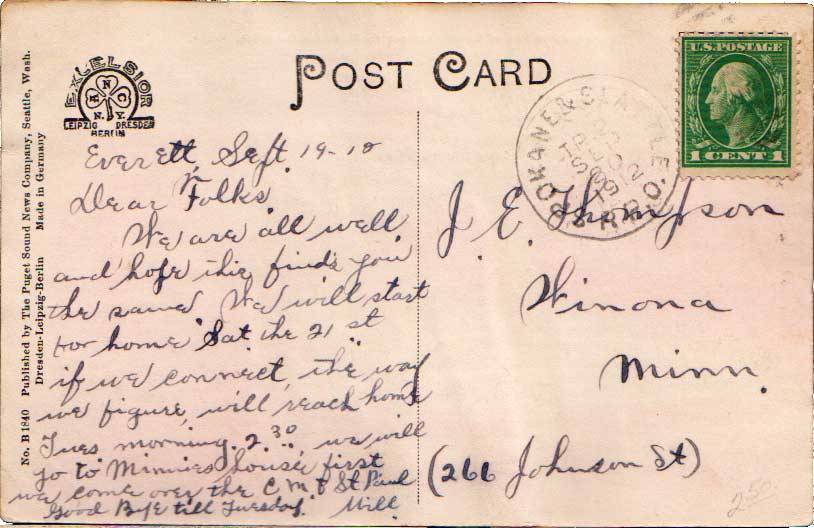 No. B 1840 Published by The Puget Sound News Company, Seattle, Wash.
Dresden-Leipzig-Berlin Made in Germany
EXCELSIOR
A N C
N.Y.
LEIPZIG DRESDEN
BERLIN
POST CARD
U.S. POSTAGE
1 CENT 1
SPOKANE & SEATTLE
R.P.O.
Everett, Sept. 19-10
Dear Folks
We are all well
and hope this finds you
the same We will start
for home Sat the 21 st
if we connect, the way
we figure, will reach home
Tues morning 2.30, we will
go to Minnies house first
we come over the C M & St Paul
Good Bye till Tuesday. Will
J. E. Thompson
Winona
Minn.
(266 Johnson St)
250